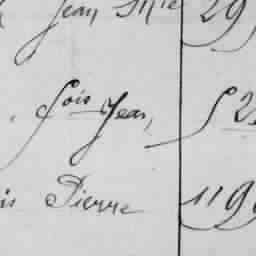 Jean Mie 29
fois Jean,
is Pierre 119